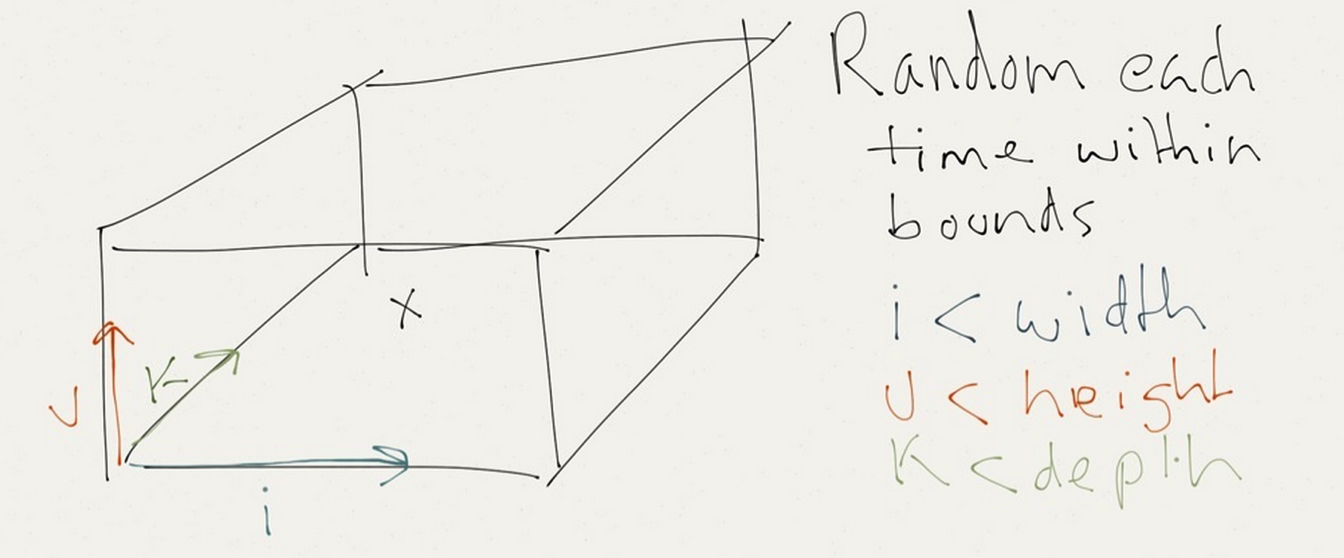 Random each
time within
bounds
i < width
J < height
K < depth
X
K
J
i